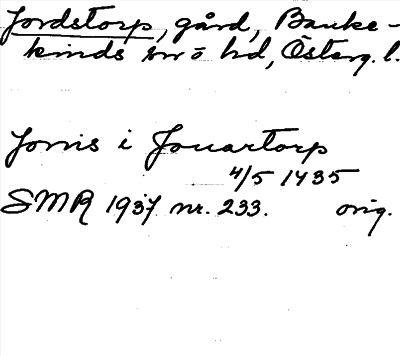 Jordstorp, gård, Banke-
kinds sn o hd, Österg. l.
Jonis i Jonartorp
4/5 1435
SMR 1937 nr. 233. orig.